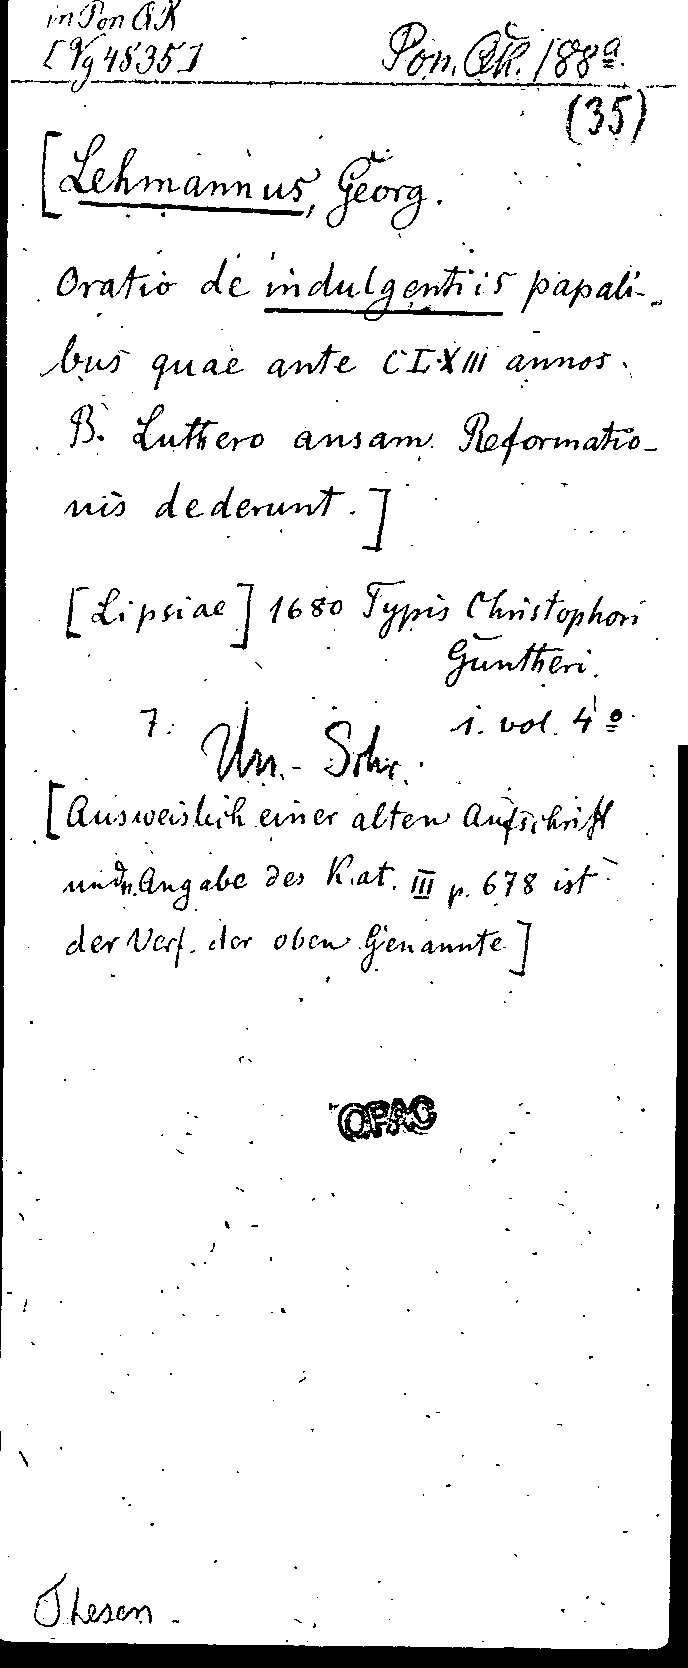 in Pon QK
[Vg 4535]
Pon. QK. 188a.
(35)
[Lehmannus, Georg.
Oratio de indulgentiis papali-
bus quae ante CLXIII annos
B. Luthero ansam Reformatio-
nis dederunt.]
[Lipsiae] 1680 Typis Christophori
Guntheri.
7. 1. vol. 4º
Un.- Schr.
[Ausweislich einer alten Aufschrift
und n. Angabe des Kat. III p. 678 ist
der Verf. der oben Genannte]
OPAC
Thesen.